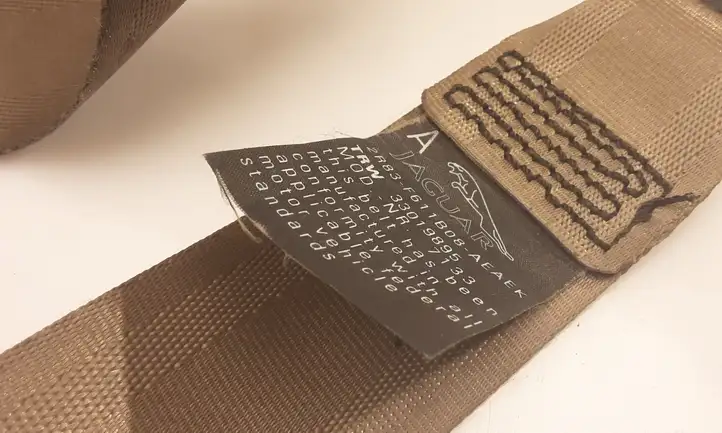 A
JAGUAR
2R83-F611B08-AEAEK
TRW 33019895
MOD -NR 7133
this belt has been
manufactured in
conformity with all
applicable federal
motor vehicle
standards